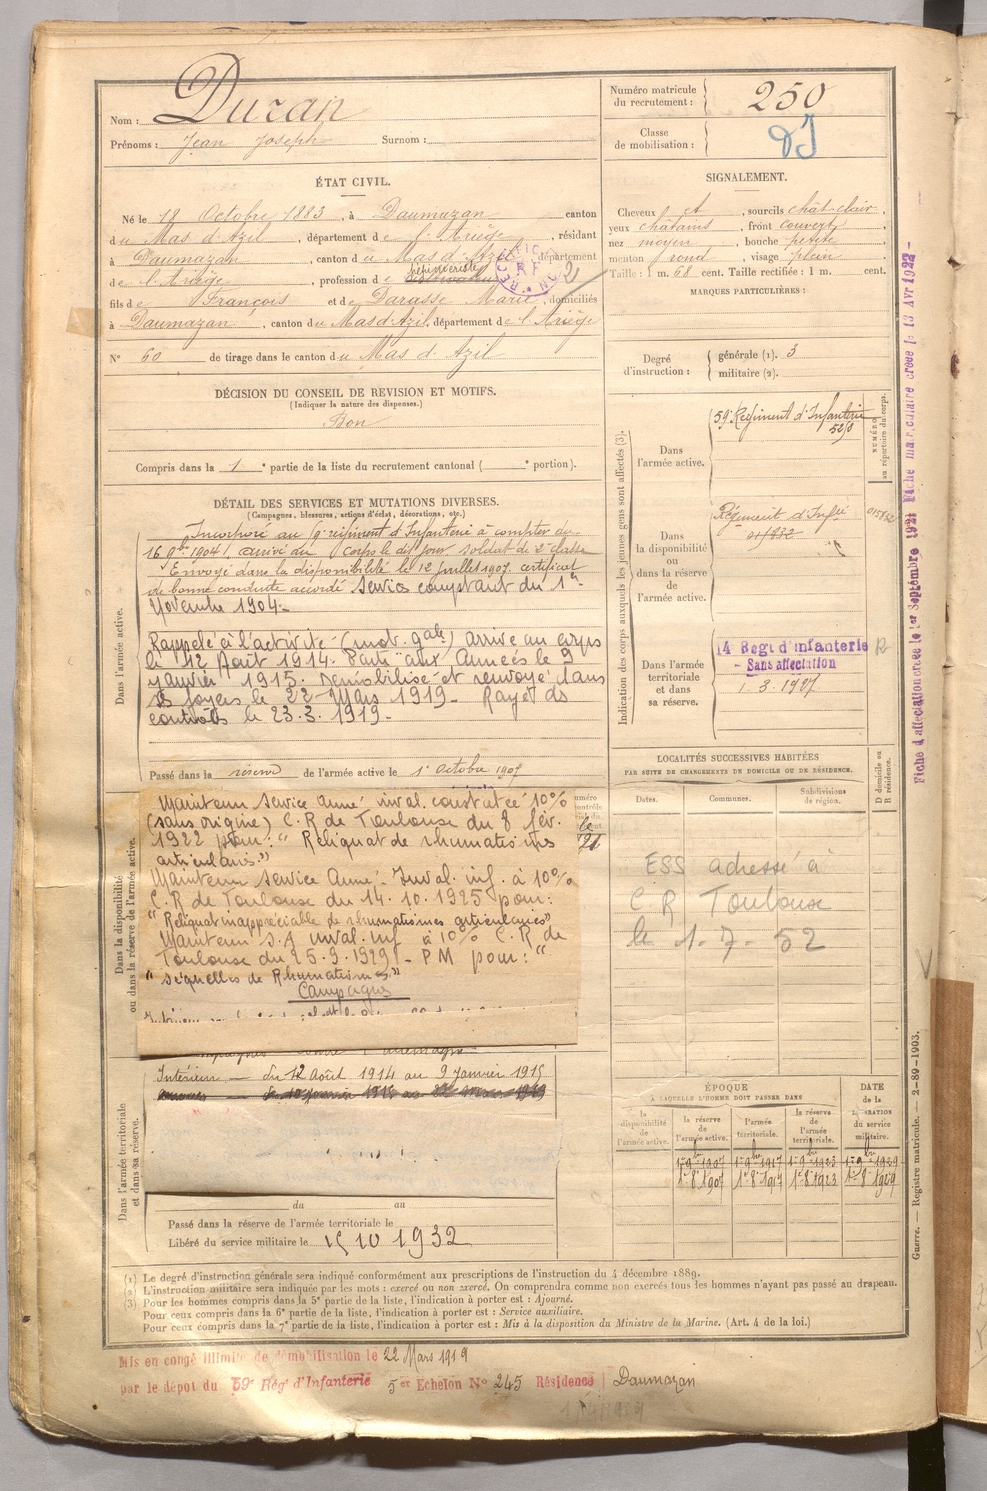 Nom : Duran
Prénoms : Jean Joseph Surnom :
Numéro matricule du recrutement : 250
Classe de mobilisation :
ÉTAT CIVIL.
Né le 18 Octobre 1883, à Daumazan canton
du Mas d'Azil, département de l'Ariège, résidant
à Daumazan, canton du Mas d'Azil département
de l'Ariège, profession de
fils de François et de Darasse Marie, domiciliés
à Daumazan, canton du Mas d'Azil, département de l'Ariège
N° 60 de tirage dans le canton du Mas d'Azil
SIGNALEMENT.
Cheveux et, sourcils chât-clair,
yeux châtains, front couvert,
nez moyen, bouche petite,
menton rond, visage plein
Taille : 1 m. 68 cent. Taille rectifiée : 1 m. cent.
MARQUES PARTICULIÈRES :
Degré d'instruction : générale (1). 3
militaire (2).
DÉCISION DU CONSEIL DE REVISION ET MOTIFS.
(Indiquer la nature des dispenses.)
Bon
Compris dans la 1e partie de la liste du recrutement cantonal ( e portion).
DÉTAIL DES SERVICES ET MUTATIONS DIVERSES.
(Campagnes, blessures, actions d'éclat, décorations, etc.)
Dans l'armée active.
Incorporé au régiment d'Infanterie à compter du
16 9bre 1904, arrivé au corps le dit jour soldat de 2e classe
Envoyé dans la disponibilité le 12 juillet 1907. certificat
de bonne conduite accordé Service comptant du 1er
Novembre 1904.
Rappelé à l'activité (mob. gale) arrivé au corps
le 12 Août 1914. Parti aux Armées le 9
Janvier 1915. Démobilisé et renvoyé dans
ses foyers le 22 Mars 1919. Rayé des
contrôles le 23.3.1919.
Passé dans la réserve de l'armée active le 1er octobre 1907
Dans la disponibilité ou dans la réserve de l'armée active.
Maintenu Service Armé inval. constatée 10%
(sans origine) C.R de Toulouse du 8 fév.
1922 pour : "Reliquat de rhumatismes
articulaires."
Maintenu Service Armé. Inval. inf. à 10%
C.R de Toulouse du 14.10.1925 pour :
"Reliquat inappréciable de rhumatismes articulaires"
Maintenu S.A inval. inf à 10% C.R de
Toulouse du 25.9.1929 - PM pour : "
"séquelles de Rhumatismes"
Campagnes
Dans l'armée territoriale et dans sa réserve.
Intérieur — du 12 Août 1914 au 9 Janvier 1915
du au
Passé dans la réserve de l'armée territoriale le
Libéré du service militaire le 15 10 1932
Indication des corps auxquels les jeunes gens sont affectés (3).
NUMÉRO au répertoire du corps.
Dans l'armée active.
59e Régiment d'Infanterie
Dans la disponibilité ou dans la réserve de l'armée active.
Régiment d'Infie
Dans l'armée territoriale et dans sa réserve.
14 Regt d'infanterie R
- Sans affectation
1.3.1927
LOCALITÉS SUCCESSIVES HABITÉES
PAR SUITE DE CHANGEMENTS DE DOMICILE OU DE RÉSIDENCE.
Dates. Communes. Subdivisions de région. D domicile ou R résidence.
ESS adressé à
C.R Toulouse
le 1-7-52
ÉPOQUE
À LAQUELLE L'HOMME DOIT PASSER DANS
la disponibilité de l'armée active. la réserve de l'armée active. l'armée territoriale. la réserve de l'armée territoriale. DATE de la LIBÉRATION du service militaire.
1er 9bre 1907 1er 9bre 1917 1er 9bre 1923 1er 9bre 1929
1er 8 1907 1er 8 1917 1er 8 1923 1er 8 1929
(1) Le degré d'instruction générale sera indiqué conformément aux prescriptions de l'instruction du 4 décembre 1889.
(2) L'instruction militaire sera indiquée par les mots : exercé ou non exercé. On comprendra comme non exercés tous les hommes n'ayant pas passé au drapeau.
(3) Pour les hommes compris dans la 5e partie de la liste, l'indication à porter est : Ajourné.
Pour ceux compris dans la 6e partie de la liste, l'indication à porter est : Service auxiliaire.
Pour ceux compris dans la 7e partie de la liste, l'indication à porter est : Mis à la disposition du Ministre de la Marine. (Art. 4 de la loi.)
Mis en congé illimité de démobilisation le 22 Mars 1919
par le dépôt du 59e Rég. d'Infanterie 5er Echelon N° 245 Résidence Daumazan
Fiche d'affectation créée le 1er Septembre 1921 Fiche matriculaire créée le 13 Avr 1922 -
Guerre. — Registre matricule. — 2-89-1903.